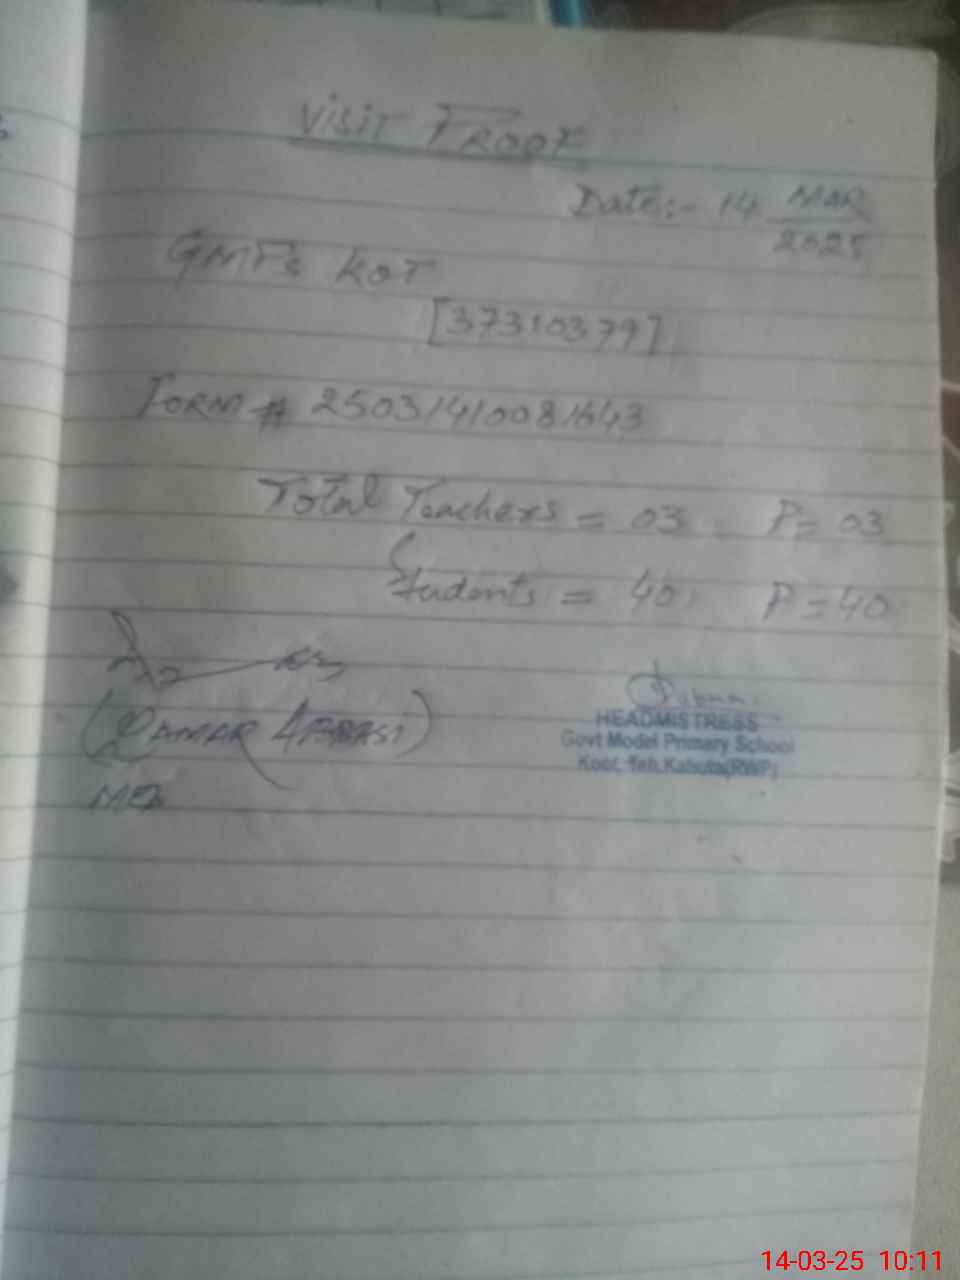 VISIT PROOF
Date:- 14 MAR
2025
GMPS KOT
[37310379]
FORM # 25031410081643
Total Teachers = 03 P= 03
Students = 40 P = 40
(QAMAR ABBASI)
HEADMISTRESS
Govt Model Primary School
Koot, Teh.Kahuta(RWP)
14-03-25 10:11